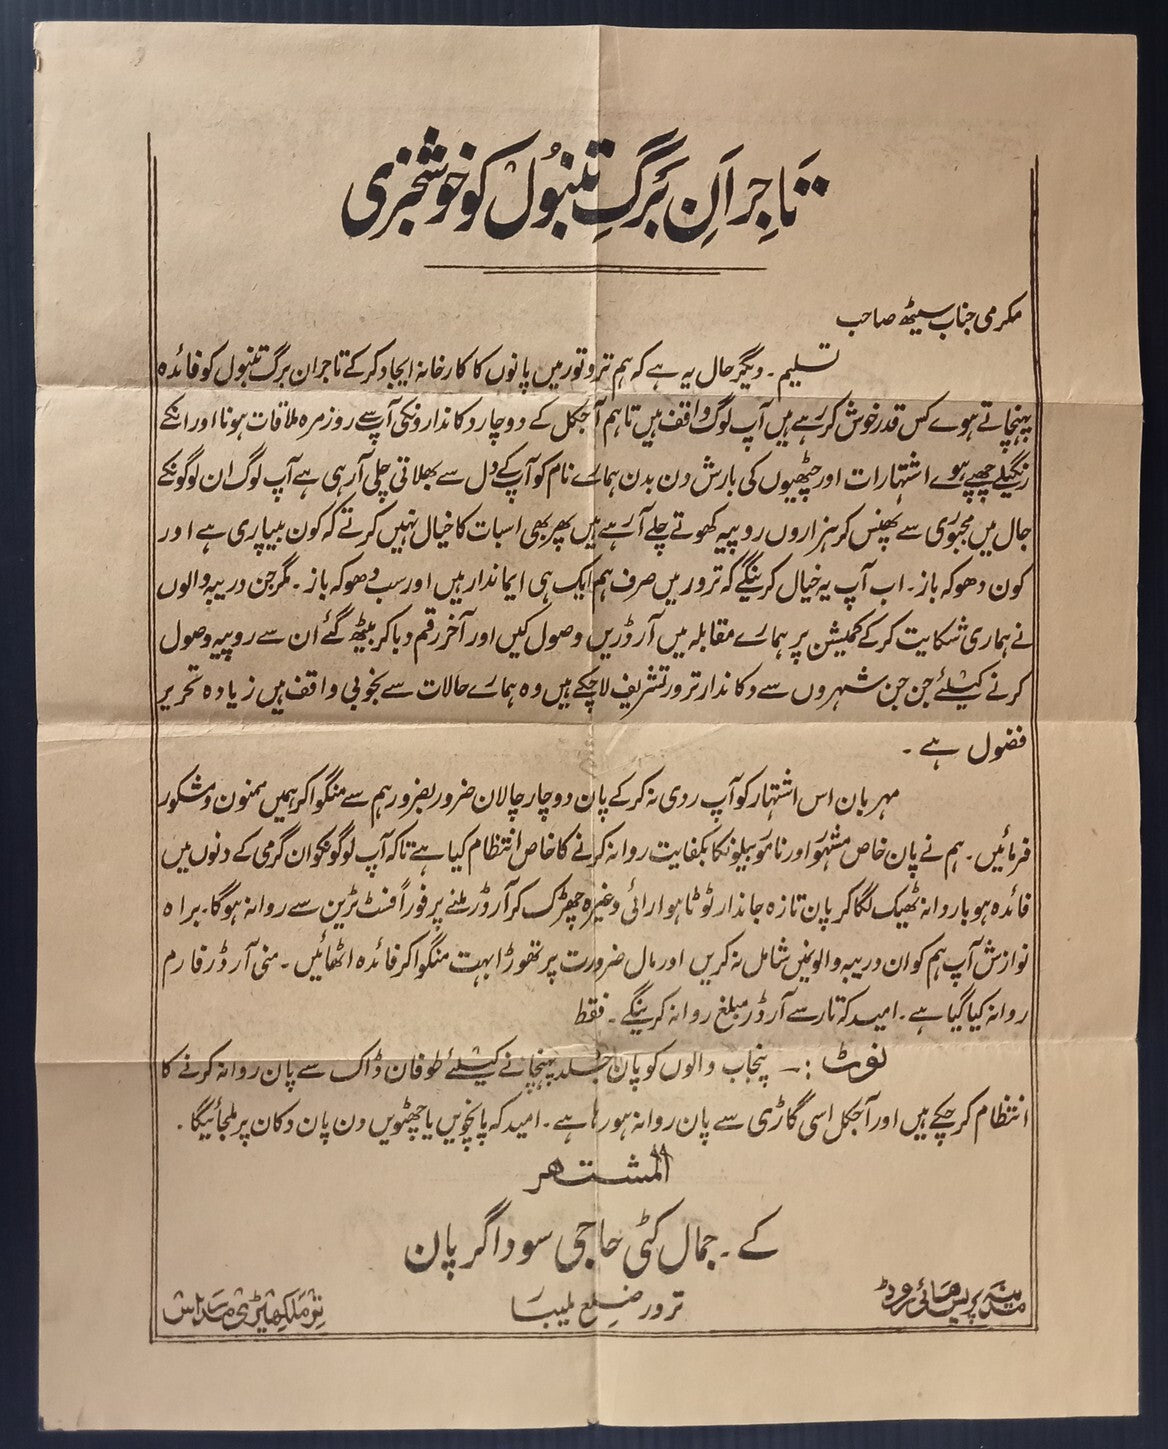 تاجرانِ برگِ تنبول کو خوشخبری
مکرمی جناب سیٹھ صاحب
تسلیم ۔ دیگر حال یہ ہے کہ ہم ترورمیں پانوں کا کارخانہ ایجاد کرکے تاجران برگ تنبول کو فائدہ
پہنچاتے ہوے کس قدر خوش کر رہے ہیں آپ لوگ واقف ہیں تاہم آجکل کے دوچار دکاندارونکی آپسے روزمرہ ملاقات ہونا اور انکے
رنگیلے چھپے ہوے اشتہارات اور چٹھیوں کی بارش دن بدن ہمارے نام کو آپکے دل سے بھلاتی چلی آرہی ہے آپ لوگ ان لوگونکے
جال میں مجبوری سے پھنس کر ہزاروں روپیہ کھوتے چلے آرہے ہیں پھر بھی اسبات کا خیال نہیں کرتے کہ کون بیپاری ہے اور
کون دھوکہ باز ۔ اب آپ یہ خیال کرینگے کہ ترور میں صرف ہم ایک ہی ایماندار ہیں اور سب دھوکہ باز ۔ مگر جن دریبہ والوں
نے ہماری شکایت کرکے کمیشن پر ہمارے مقابلہ میں آرڈریں وصول کیں اور آخر رقم دباکر بیٹھ گئے ان سے روپیہ وصول
کرنے کیلئے جن جن شہروں سے دکاندار ترور تشریف لاچکے ہیں وہ ہمارے حالات سے بخوبی واقف ہیں زیادہ تحریر
فضول ہے ۔
مہربان اس اشتہار کو آپ ردی نہ کرکے پان دوچار چالان ضرور بضرور ہم سے منگواکر ہمیں ممنون ومشکور
فرمائیں ۔ ہم نے پان خاص مشہور اور نامور بیلونکا بکفایت روانہ کرنے کا خاص انتظام کیا ہے تاکہ آپ لوگونکو ان گرمی کے دنوں میں
فائدہ ہو باروانہ ٹھیک لگاکر پان تازہ جاندار ٹوٹا ہوا رائی وغیرہ چھڑک کر آرڈر ملنے پر فوراً فنٹ ٹرین سے روانہ ہوگا۔ براہ
نوازش آپ ہم کو ان دریبہ والونمیں شامل نہ کریں اور مال ضرورت پر تھوڑا بہت منگواکر فائدہ اٹھائیں ۔ منی آرڈر فارم
روانہ کیا گیا ہے ۔ امید کہ تار سے آرڈر مبلغ روانہ کرینگے ۔ فقط
نوٹ :۔ پنجاب والوں کو پان جلد پہنچانے کیلئے طوفان ڈاک سے پان روانہ کرنے کا
انتظام کرچکے ہیں اور آجکل اسی گاڑی سے پان روانہ ہورہا ہے ۔ امید کہ پانچویں یا چھٹویں دن پان دکان پر ملجائیگا ۔
المشتہر
کے ۔ جمال کٹی حاجی سوداگر پان
ترور ضلع ملیبار
مدینہ پریس ہائی روڈ
مدراس